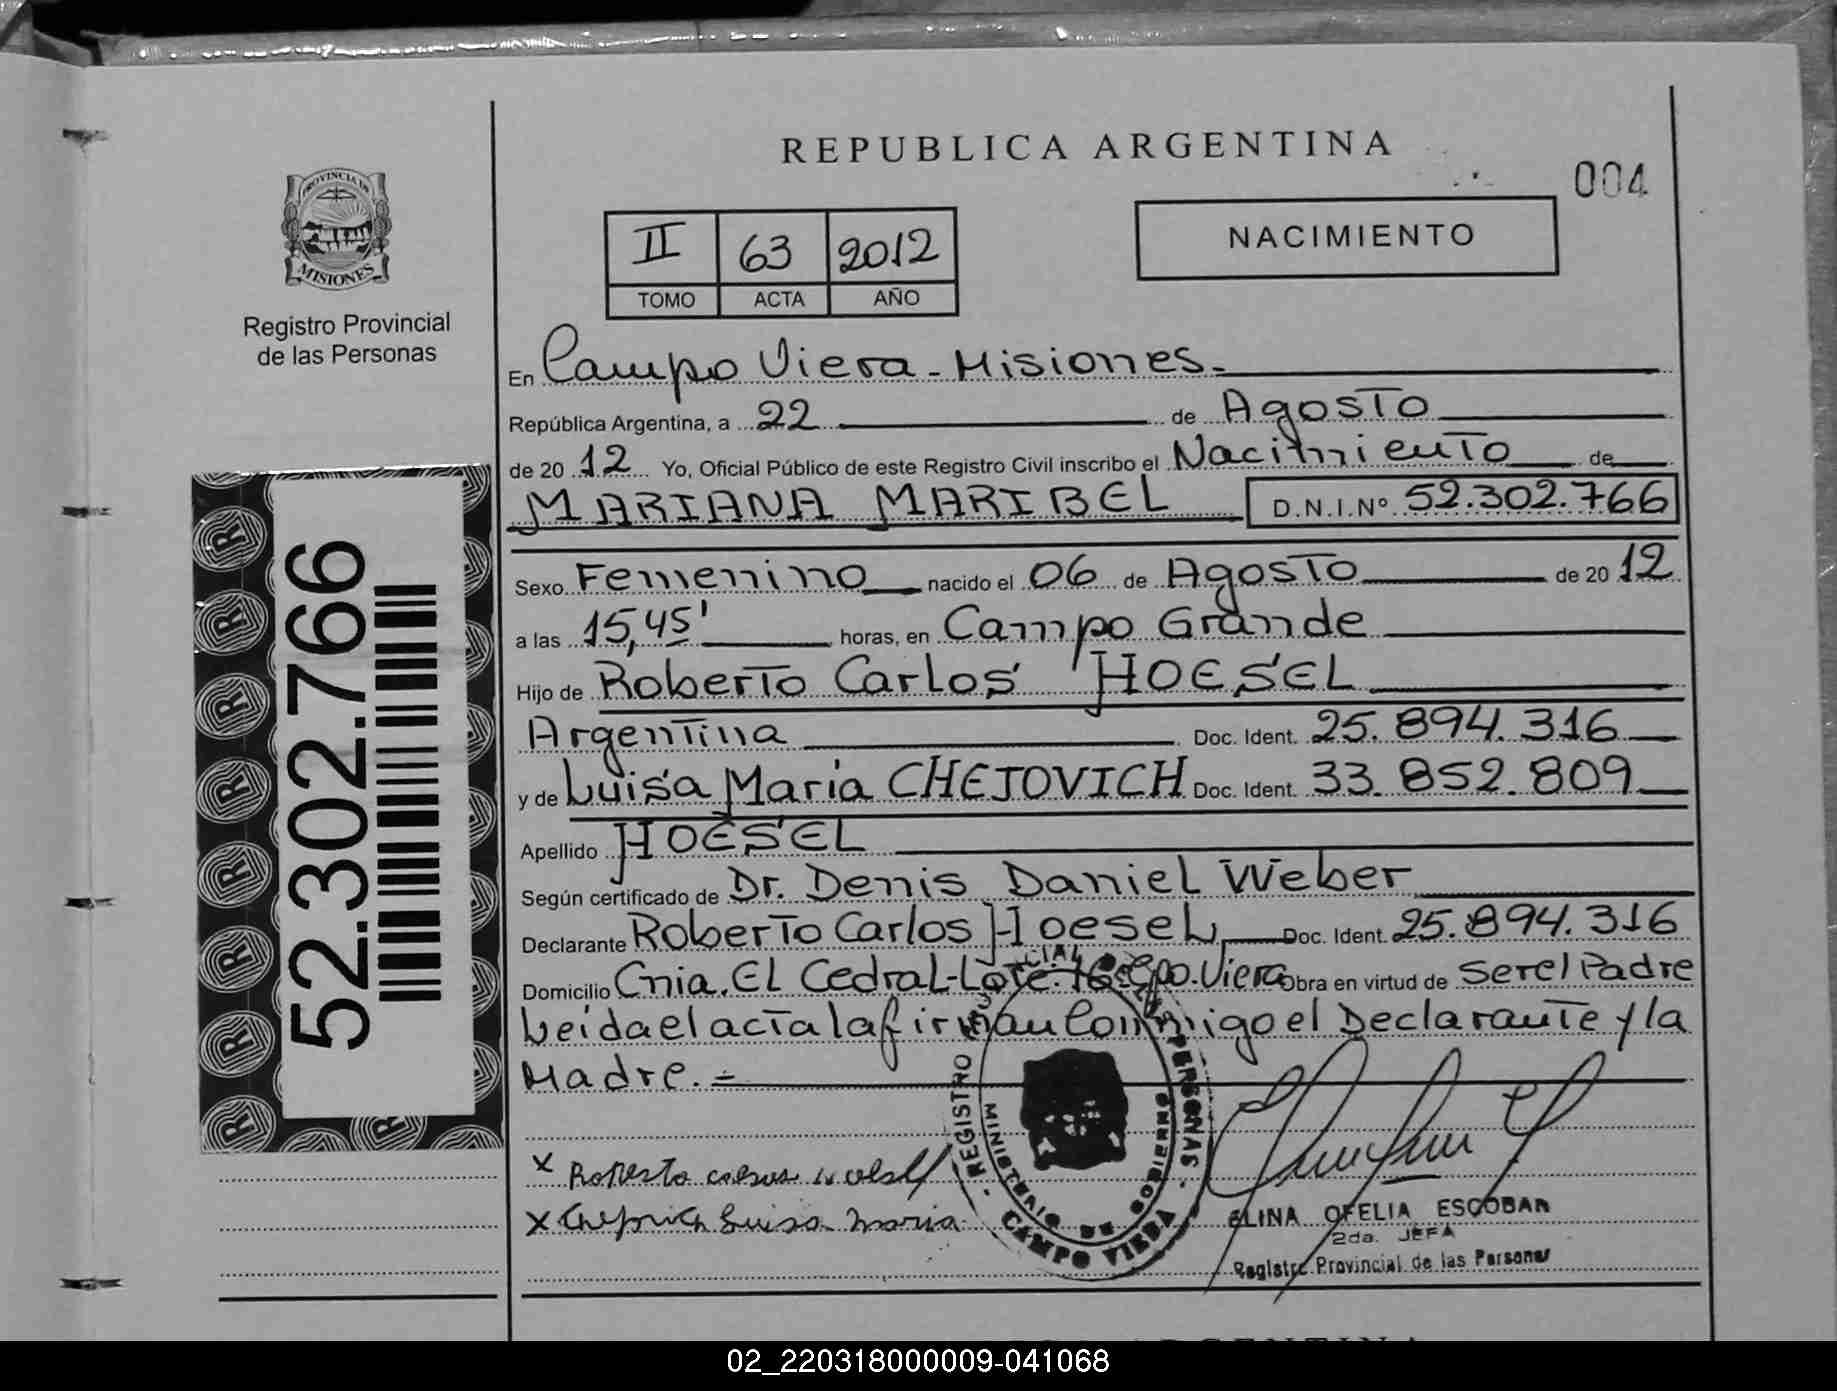 REPUBLICA ARGENTINA
004
PROVINCIA DE
MISIONES
Registro Provincial
de las Personas
II 63 2012
TOMO ACTA AÑO
NACIMIENTO
En Campo Viera - Misiones.-
República Argentina, a 22 de Agosto
de 2012 Yo, Oficial Público de este Registro Civil inscribo el Nacimiento de
MARIANA MARIBEL D.N.I.Nº 52.302.766
Sexo Femenino nacido el 06 de Agosto de 2012
a las 15,45' horas, en Campo Grande
Hijo de Roberto Carlos HOESEL
Argentina Doc. Ident. 25.894.316
y de Luisa Maria CHEJOVICH Doc. Ident. 33.852.809
Apellido HOESEL
Según certificado de Dr. Denis Daniel Weber
Declarante Roberto Carlos Hoesel Doc. Ident. 25.894.316
Domicilio Cnia. El Cedral-Lote.76 Cpo.Viera Obra en virtud de Ser el Padre
Leida el acta la firman Conmigo el Declarante y la
Madre.-
52.302.766
REGISTRO PROVINCIAL DE LAS PERSONAS
MINISTERIO DE GOBIERNO
CAMPO VIERA
x Roberto
x Luisa Maria
ELINA OFELIA ESCOBAR
2da. JEFA
Registro Provincial de las Personas
ARGENTINA
02_220318000009-041068